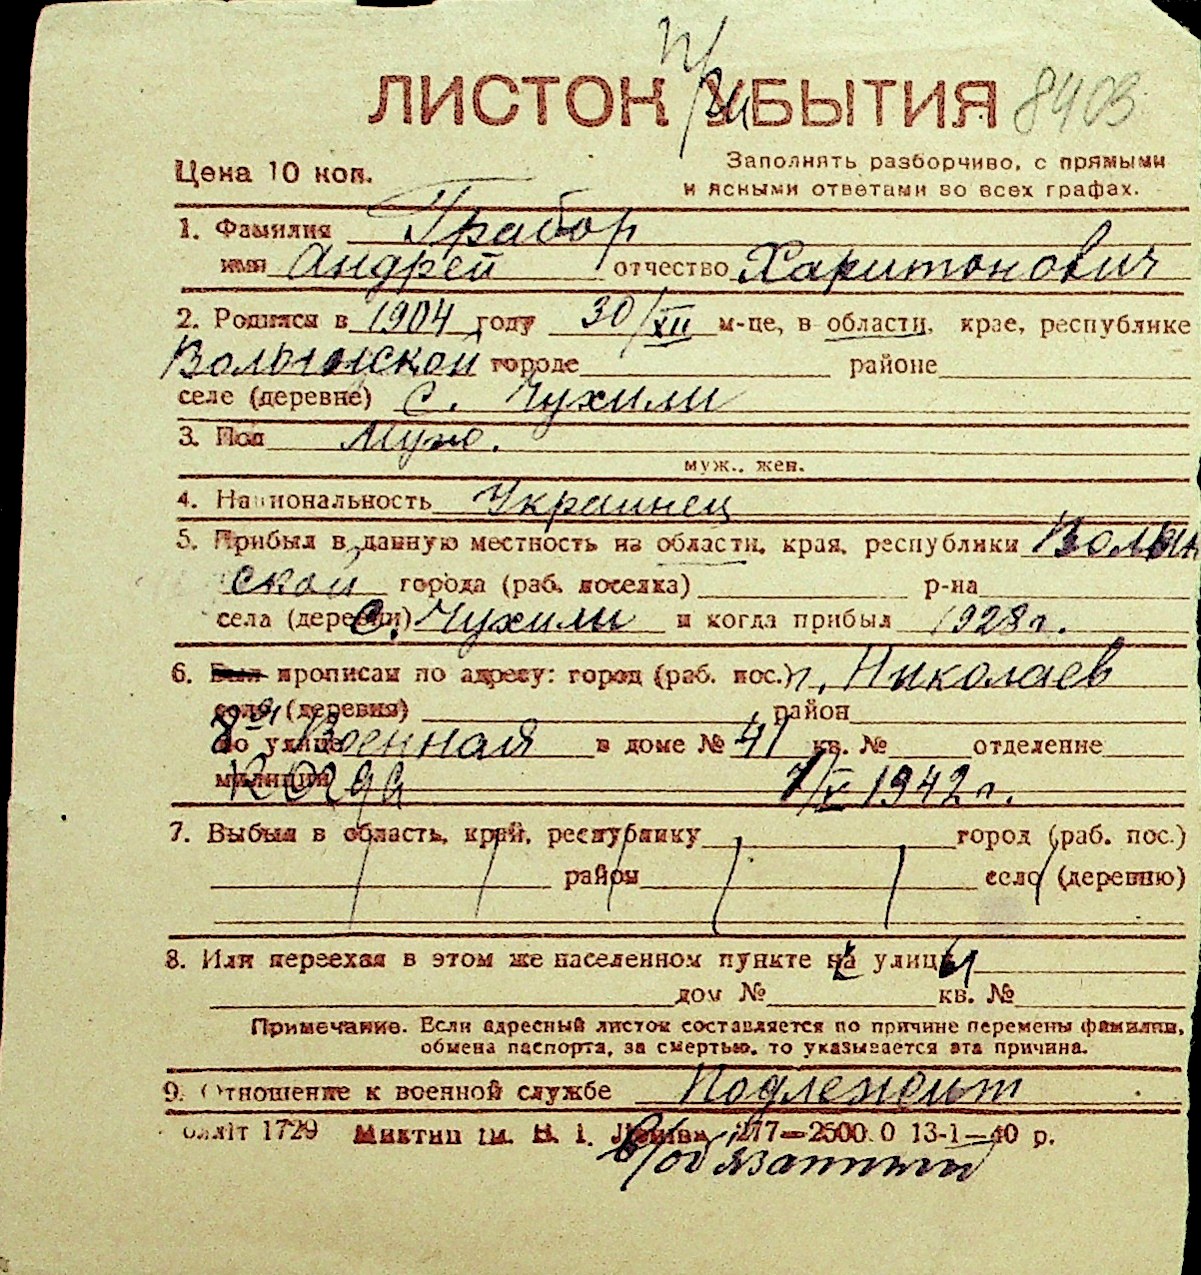 ЛИСТОК УБЫТИЯ 8403
Цена 10 коп.
Заполнять разборчиво, с прямыми
и ясными ответами во всех графах.
1. Фамилия Грабор
имя Андрей отчество Харитонович
2. Родился в 1904 году 30/XII м-це, в области, крае, республике
Волынской городе районе
селе (деревне) с. Чухили
3. Пол Муж.
муж., жен.
4. Национальность Украинец
5. Прибыл в данную местность из области, края, республики Волын
ской города (раб. поселка) р-на
села (деревни) с. Чухили и когда прибыл 1928 г.
6. Был прописан по адресу: город (раб. пос.) г. Николаев
село (деревня) район
по улице 8я Военная в доме № 41 кв. № отделение
милиции когда 1942 г.
7. Выбыл в область, край, республику город (раб. пос.)
район село (деревню)
8. Или переехал в этом же населенном пункте на улицу
дом № кв. №
Примечание. Если адресный листок составляется по причине перемены фамилии,
обмена паспорта, за смертью, то указывается эта причина.
9. Отношение к военной службе Подлежит
олліт 1729 Миктип ім. В. І. Леніна 277—2500.0 13-1—40 р.
в/обязанный